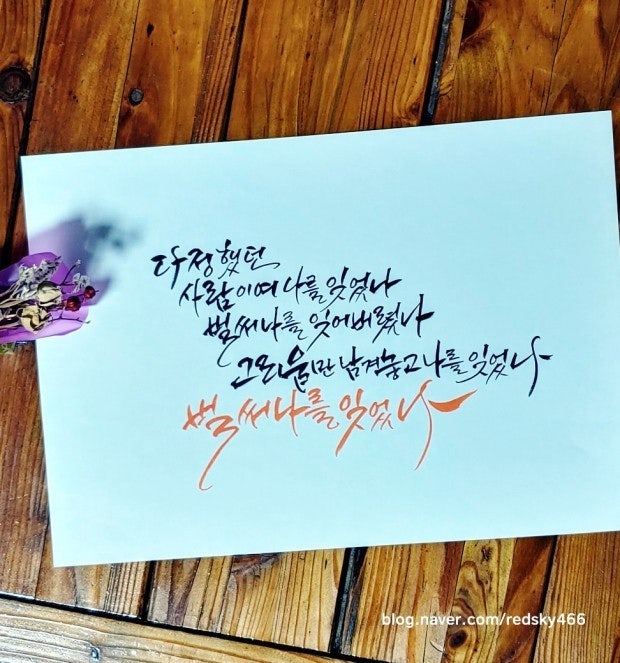 다정했던
사람이여 나를 잊었나
벌써 나를 잊어버렸나
그리움만 남겨놓고 나를 잊었나
벌써 나를 잊었나
blog.naver.com/redsky466